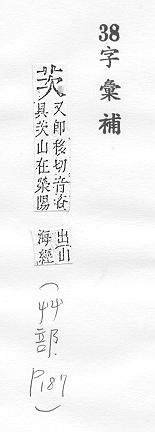 38字彙補
茨又即移切音咨
具茨山在滎陽
出山
海經
(艸部
P187)